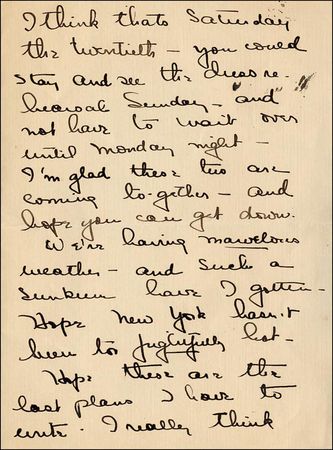 I think thats Saturday
the twentieth - you could
stay and see the dress re-
hearsal Sunday - "and"
not have to wait over
until Monday night -
I'm glad these two are
coming to-gether - and
hope you can get down.
We're having marvelous
weather - and such a
sunburn have I gotten -
Hope New York hasn't
been too frightfully hot -
Hope these are the
last plans I have to
write. I really think